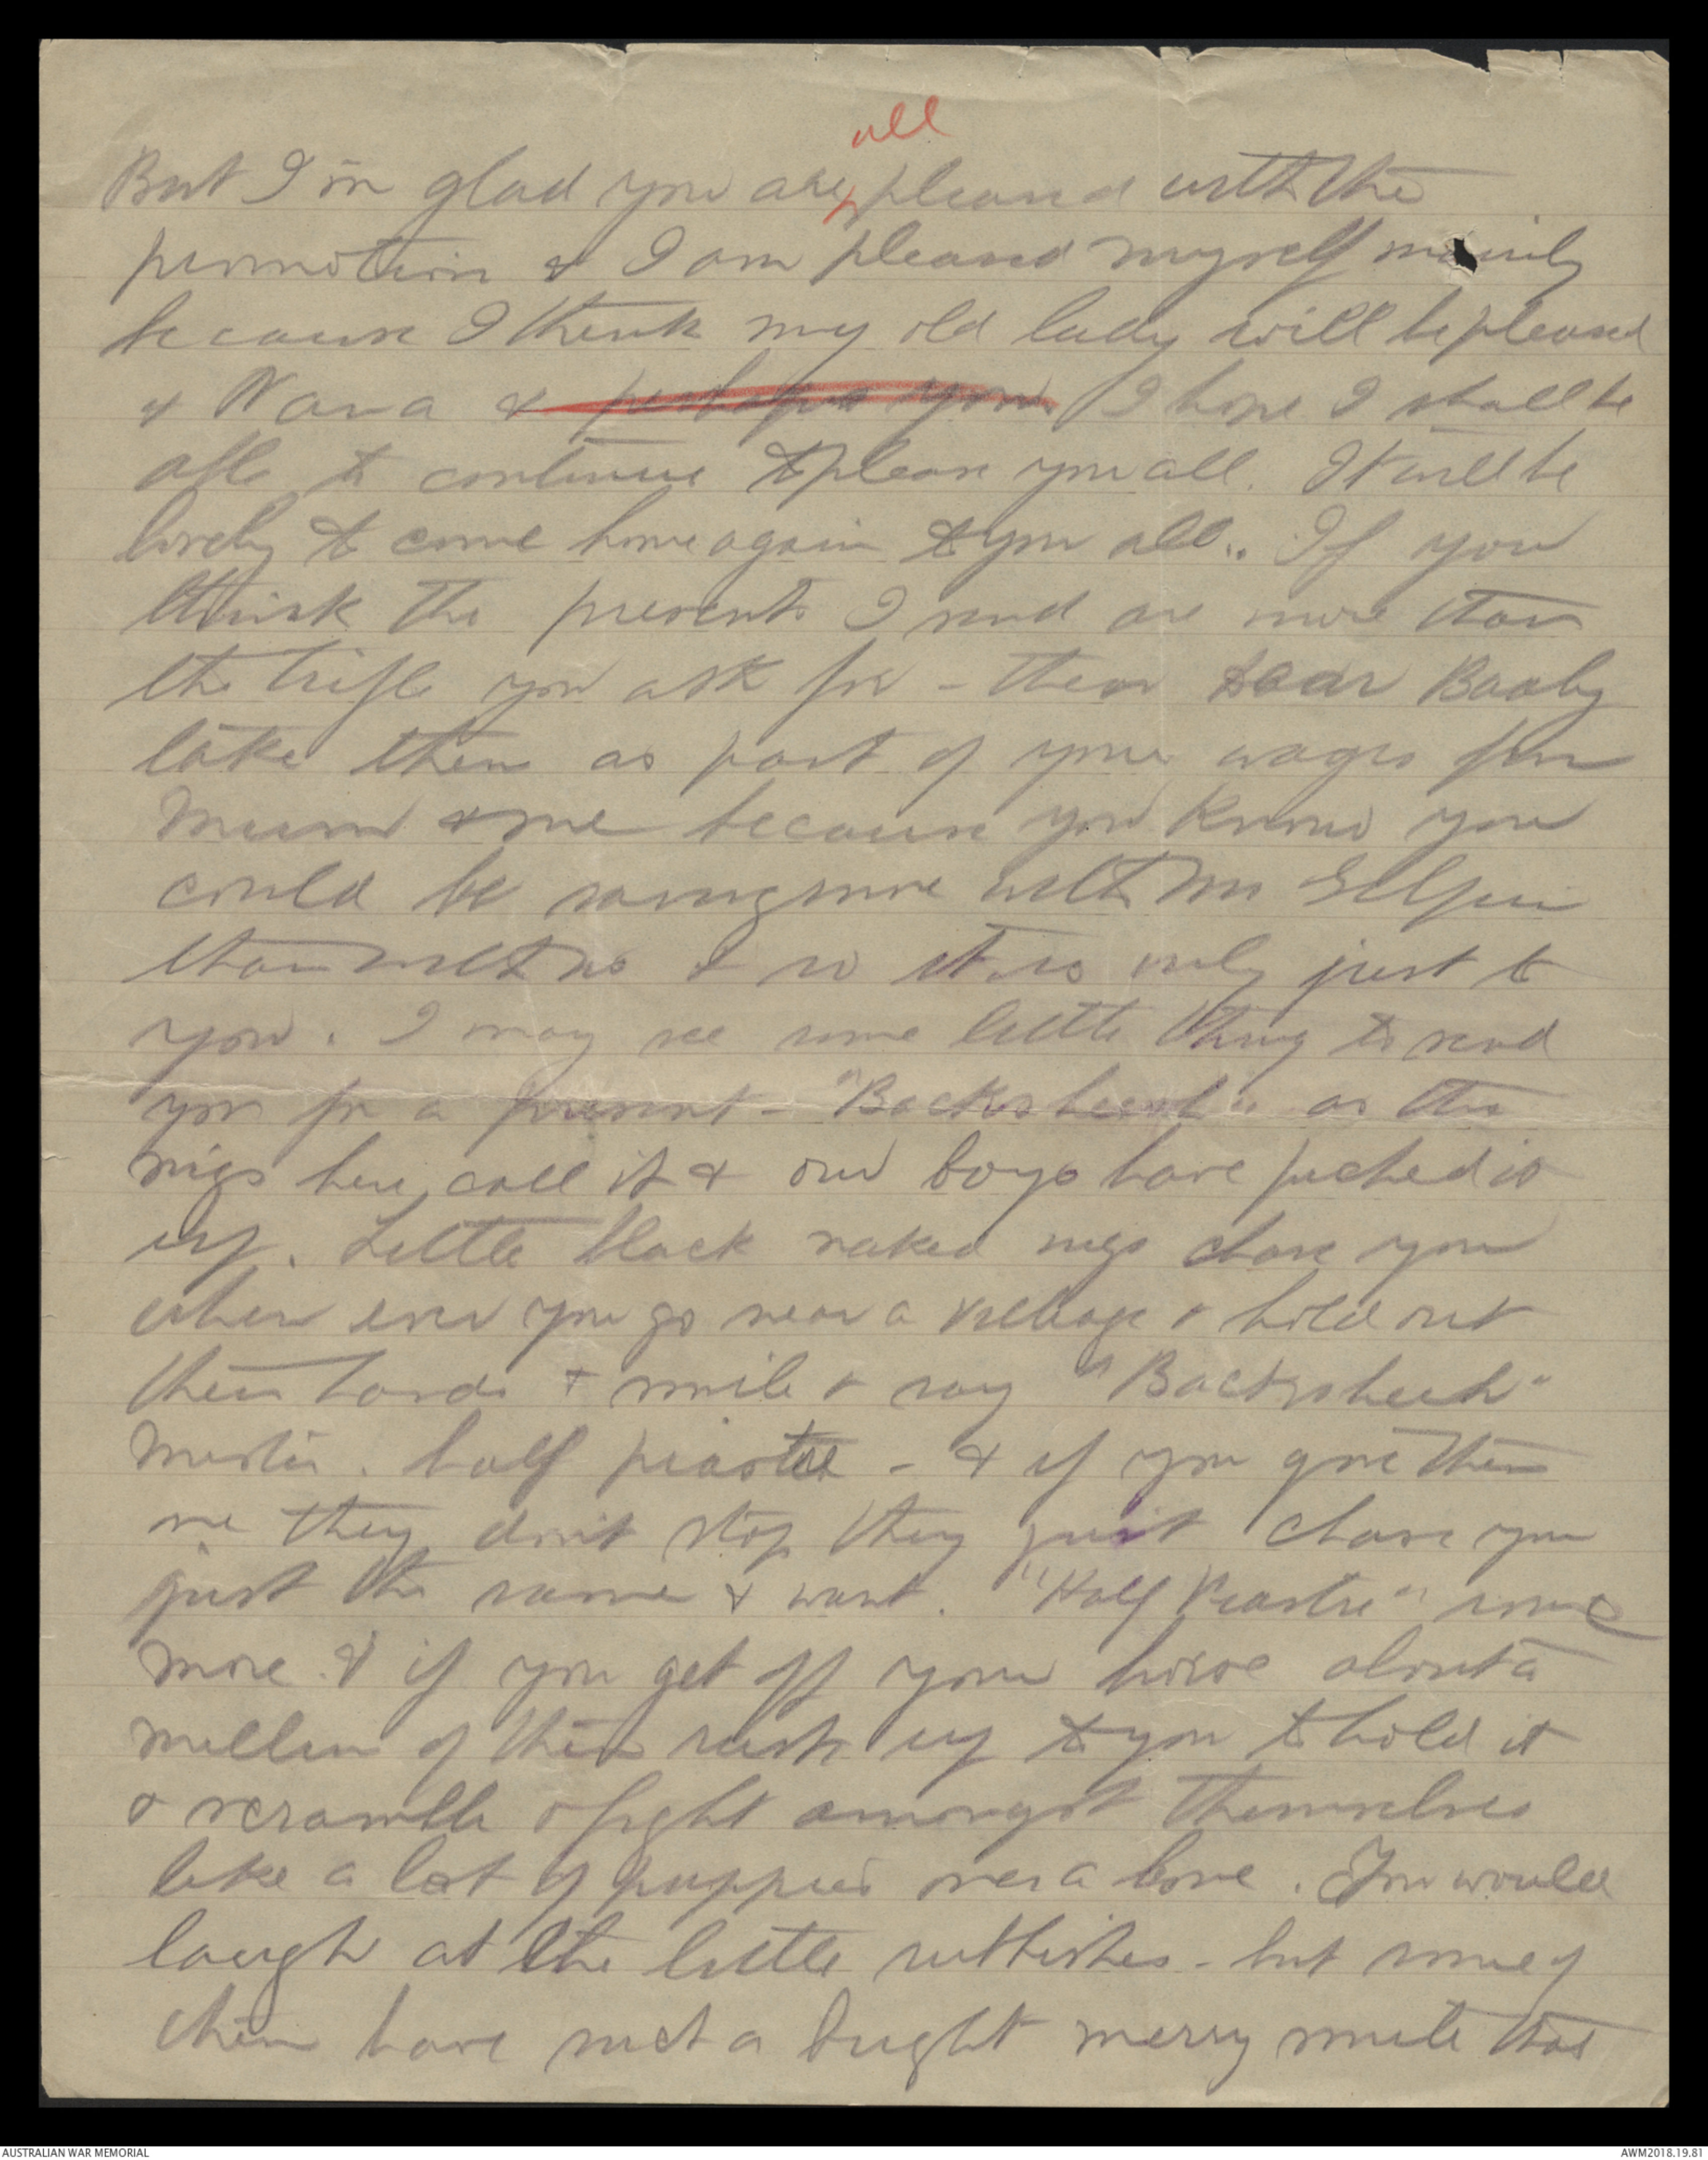 all
But I'm glad you are pleased with the
promotion & I am pleased myself mainly
because I think my old lady will be pleased
& Nana & perhaps you. I hope I shall be
able to continue to please you all. It will be
lovely to come home again to you all.. If you
think the presents I send are more than
the trifle you ask for - then dear Baaby
take them as part of your wages from
Mum & me because you know you
could be saving more with Mrs
than with us & so it is only just to
you. I may see some little thing to send
you for a present - "Backsheesh" as the
nigs here, call it & our boys have picked it
up. Little black naked nigs chase you
when ever you go near a village & hold out
their hands & smile & say "Backsheesh"
Mister. half piastre - & if you give them
one they don't stop they just chase you
just the same & want. "Half Piastre" some
more. & if you get off your horse about a
million of them rush up to you to hold it
& scramble & fight amongst themselves
like a lot of puppies over a bone. You would
laugh at the little rubbishes - but some of
them have such a bright merry smile that
AUSTRALIAN WAR MEMORIAL
AWM2018.19.81